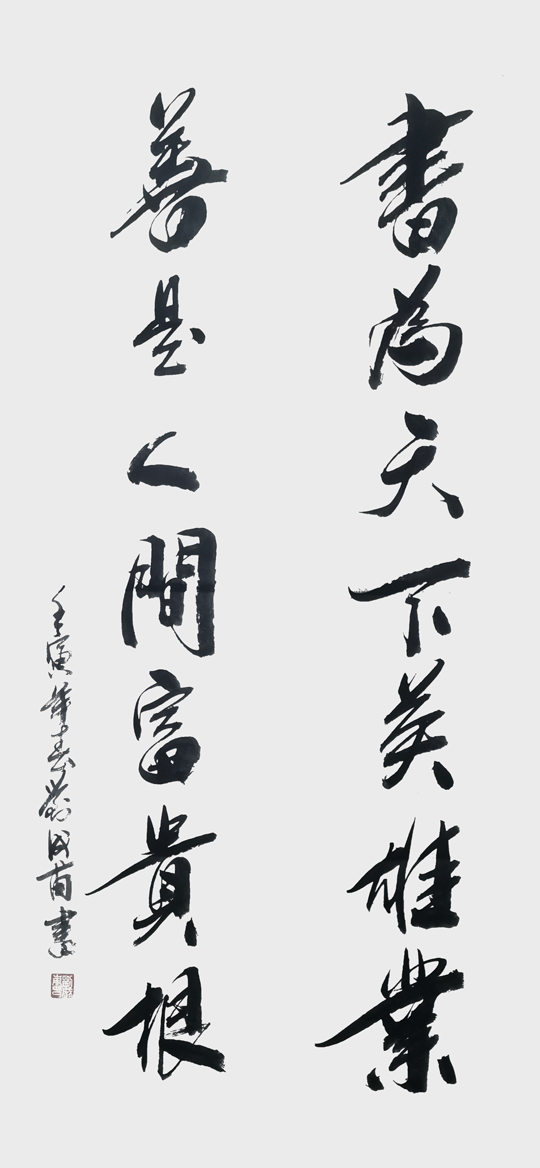 書為天下英雄業
善是人間富貴根
壬寅年春 書